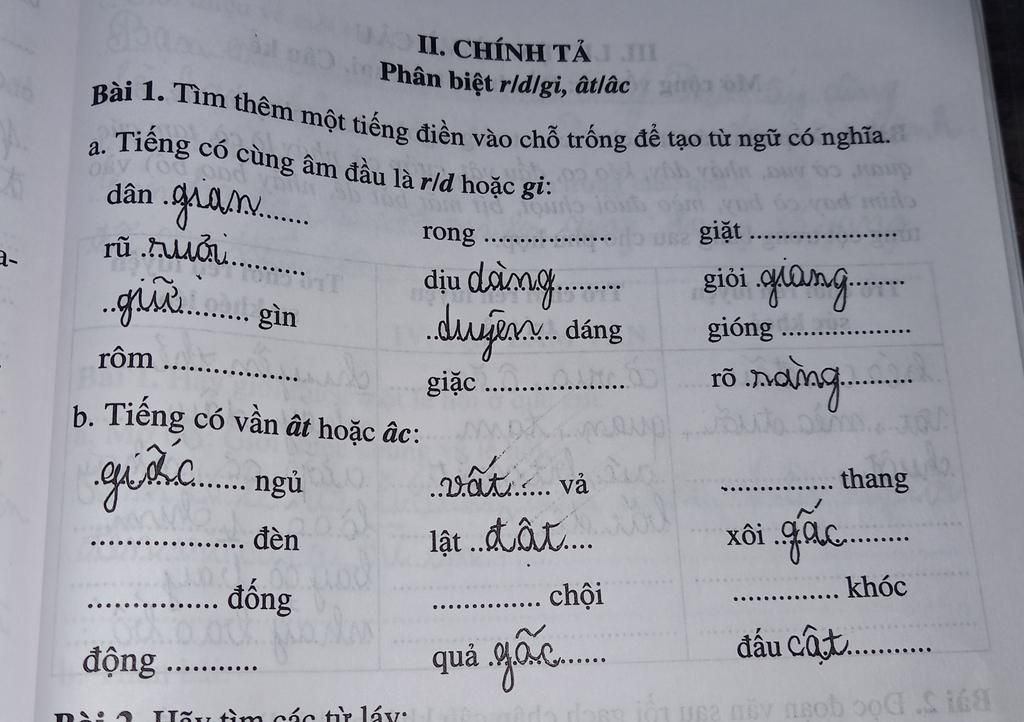 II. CHÍNH TẢ
Phân biệt r/d/gi, ât/âc
Bài 1. Tìm thêm một tiếng điền vào chỗ trống để tạo từ ngữ có nghĩa.
a. Tiếng có cùng âm đầu là r/d hoặc gi:
dân .gian....... rong ................. giặt ....................
rũ .rượi........... dịu dàng......... giỏi .giang........
..giữ.......... gìn ..duyên... dáng gióng .................
rôm .................. giặc .................. rõ .ràng..........
b. Tiếng có vần ât hoặc âc:
.giấc....... ngủ ..vất..... vả ............... thang
.................... đèn lật ..đật.... xôi .gấc.........
................. đống .............. chội .............. khóc
động ............ quả .gấc...... đấu cật...........
Bài 2. Hãy tìm các từ láy: